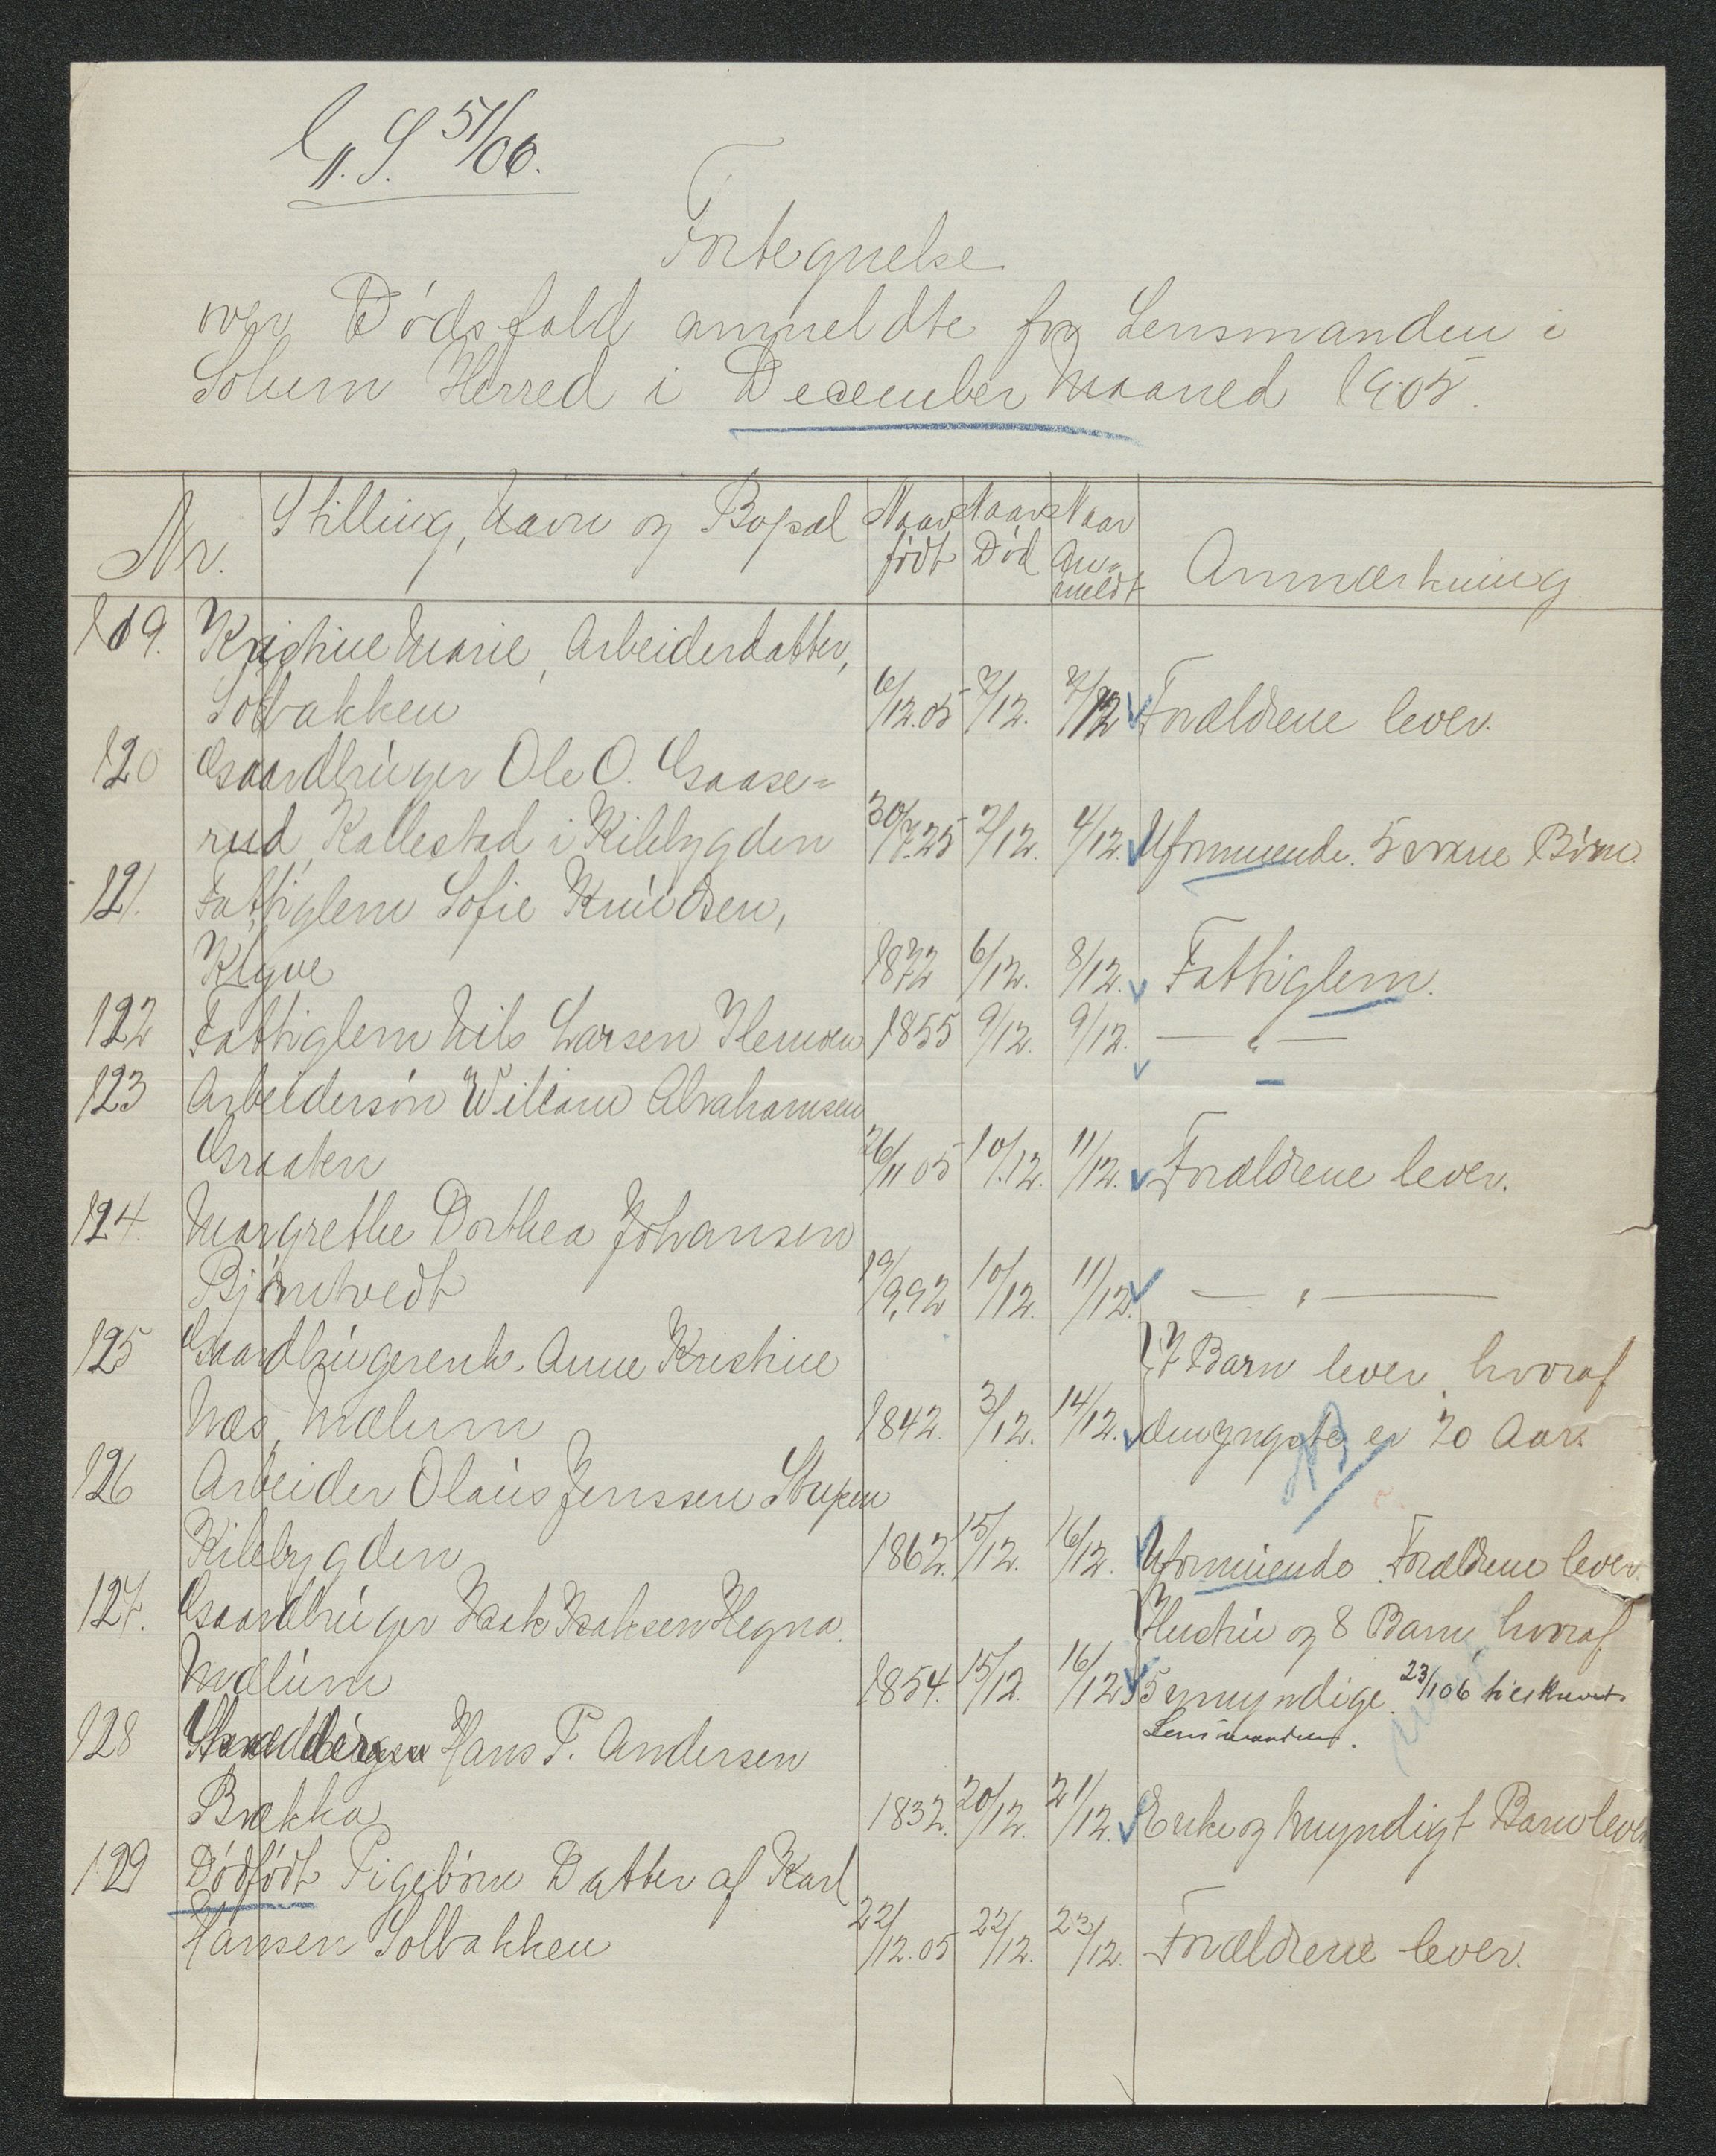 G. S. 51/06.
Fortegnelse
over Dødsfald anmeldte for Lensmanden i
Solum Herred i December Maaned 1905.
Nr. Stilling, Navn og Bopæl Naar født Naar Død Naar Anmeldt Anmærkning
119. Kristine Marie, Arbeiderdatter,
Solbakken 6/12.05 7/12. 7/12 Forældrene lever.
120 Gaardbruger Ole O. Gaase=
rud, Kallestad i Kilebygden 30/7.25 2/12. 4/12. Uformuende. 5 voxne Børn.
121. Fattiglem Sofie Knudsen,
Klyve 1872 6/12. 8/12. Fattiglem.
122 Fattiglem Nils Larsen Klemoen 1855 9/12. 9/12. — " —
123 Arbeidersøn Wiliam Abrahamsen
Graaten 26/11 05 10/12. 11/12. Forældrene lever.
124. Margrethe Dorthea Johansen
Bjørntvedt 19/9.92 10/12. 11/12. — " —
125 Gaardbrugerenk. Anne Kristine 7 Barn lever, hvoraf
Næs, Mælum 1842. 3/12. 14/12. den yngste er 20 Aar.
NB
126 Arbeider Olaus Jenssen Stupen
Kilebygden 1862. 15/12. 16/12. Uformuende. Forældrene lever.
127. Gaardbruger Isak Isaksen Hegna. Hustru og 8 Barn, hvoraf
Mælum 1854. 15/12. 16/12 5 umyndige. 23/1 06 tilskrevet
Lensmanden.
128 Hans P. Andersen
Brækka 1832. 20/12. 21/12. Enke og Myndigt Barn lever
129 Dødfødt Pigebørn Datter af Karl
Hansen Solbakken 22/12.05 22/12. 23/12. Forældrene lever.